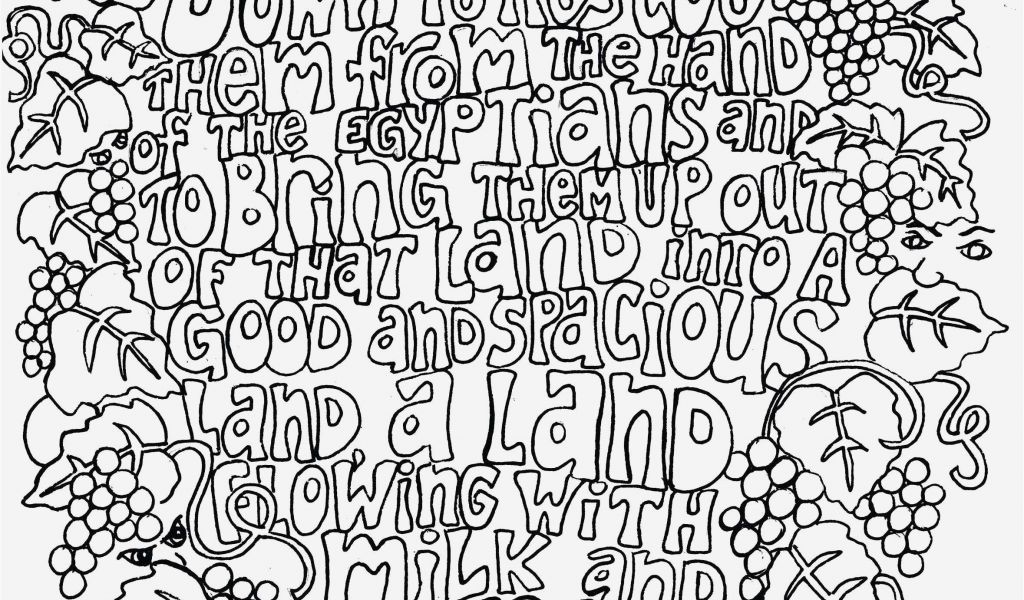 DOWN TO RESCUE
THEM from THE HAND
of THE EGYPTIANS and
TO BRING THEM UP OUT
OF THAT LAND INTO A
GOOD and SPACIOUS
Land, a Land
flowing WITH
MILK and